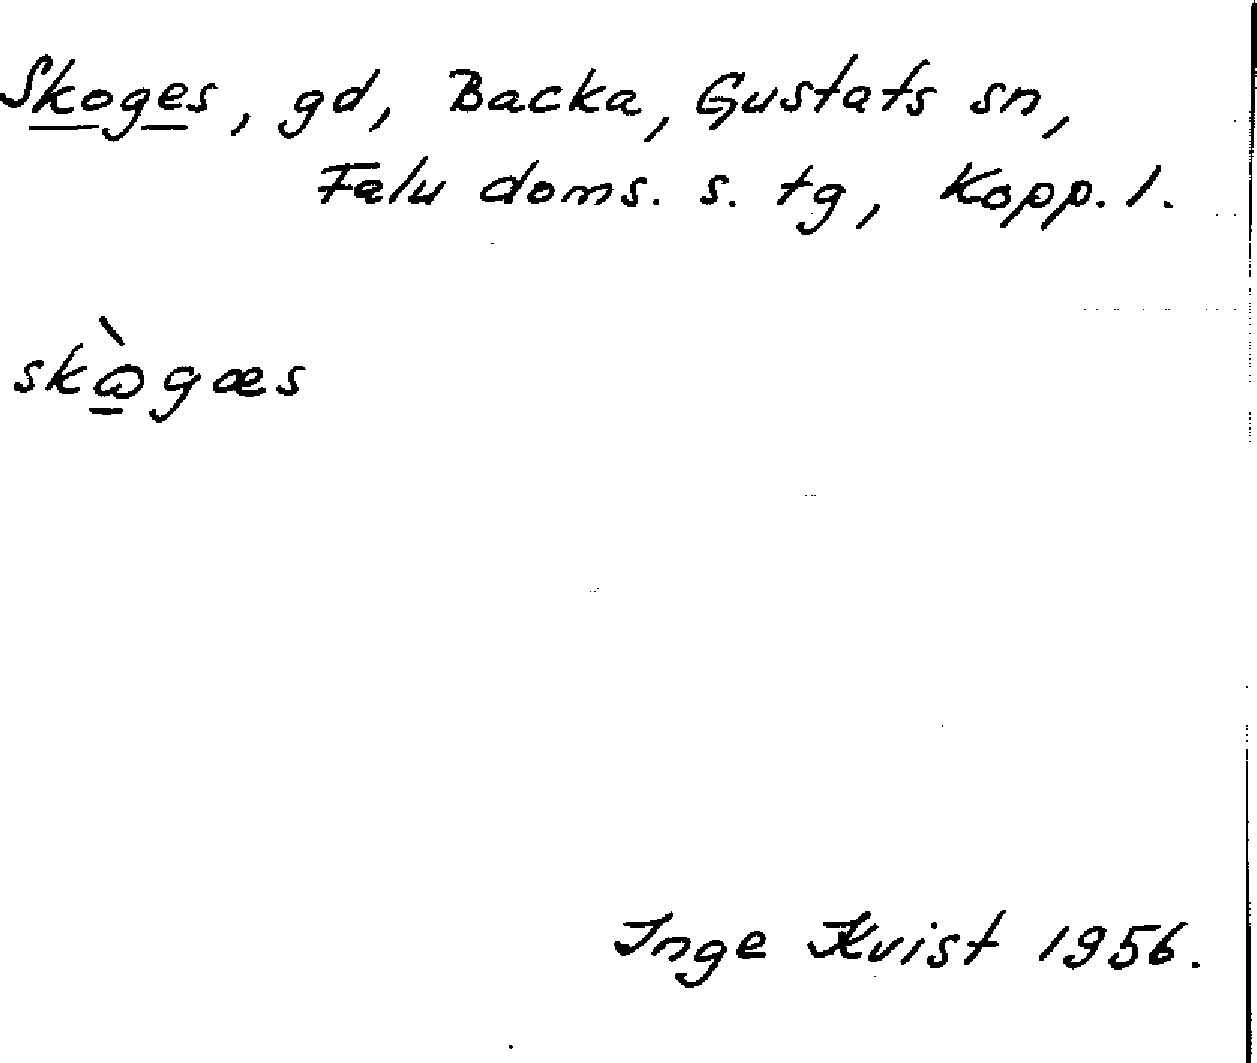 Skoges, gd, Backa, Gustafs sn,
Falu doms. s. tg, Kopp. l.
skὼ̲gæs
Inge Kvist 1956.